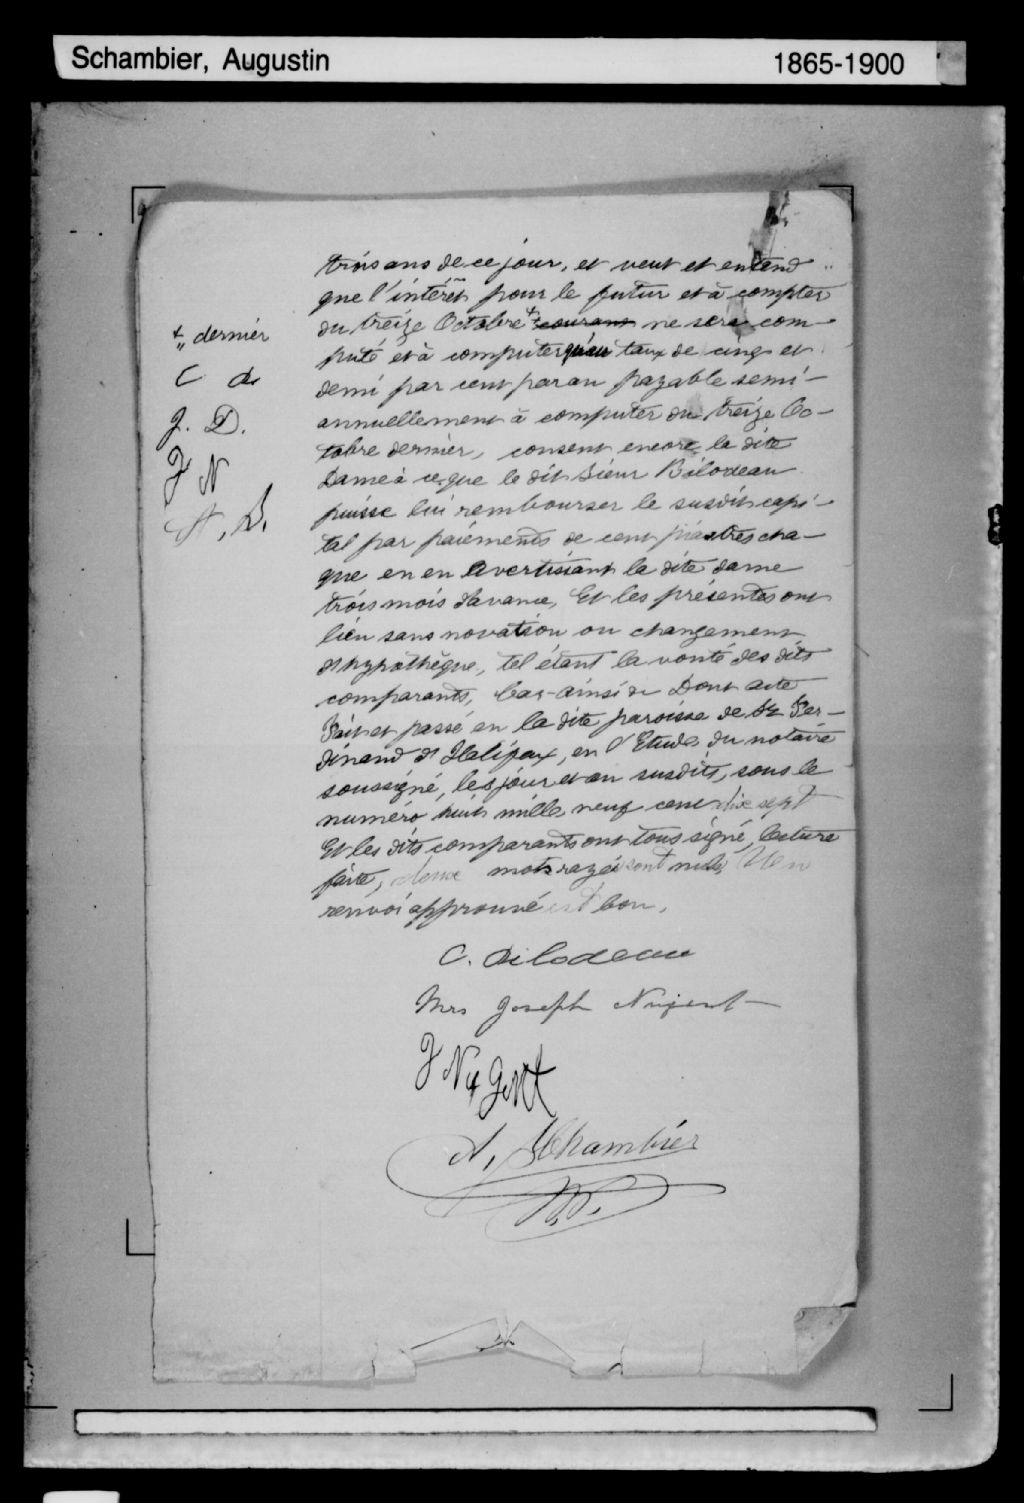 Schambier, Augustin 1865-1900
trois ans de ce jour, et veut et entend
que l'intérêt pour le futur et à compter
du treize Octobre + courant ne sera com-
puté et à computer qu'au taux de cinq et
demi par cent par an payable semi-
annuellement à computer du treize Oc-
tobre dernier, consent encore la dite
Dame à ce que le dit Sieur Bilodeau
puisse lui rembourser le susdit capi-
tal par paiements de cent piastres cha-
que en en avertissant la dite dame
trois mois d'avance, Et les présentes ont
lieu sans novation ou changement
d'hypothèque, tel étant la vonté des dits
comparants, Car-ainsi &c Dont acte
Fait et passé en la dite paroisse de St Fer-
dinand d'Halifax, en l'Etude du notaire
soussigné, les jour et an susdits, sous le
numéro huit mille neuf cent dix sept
Et les dits comparants ont tous signé, lecture
faite, deux mots razés sont nuls, Un
renvoi approuvé est bon.
+ dernier
C B
J. D.
J N
A, S.
C. Bilodeau
Mrs Joseph Nugent
J Nugent
A, Schambier
N.P.